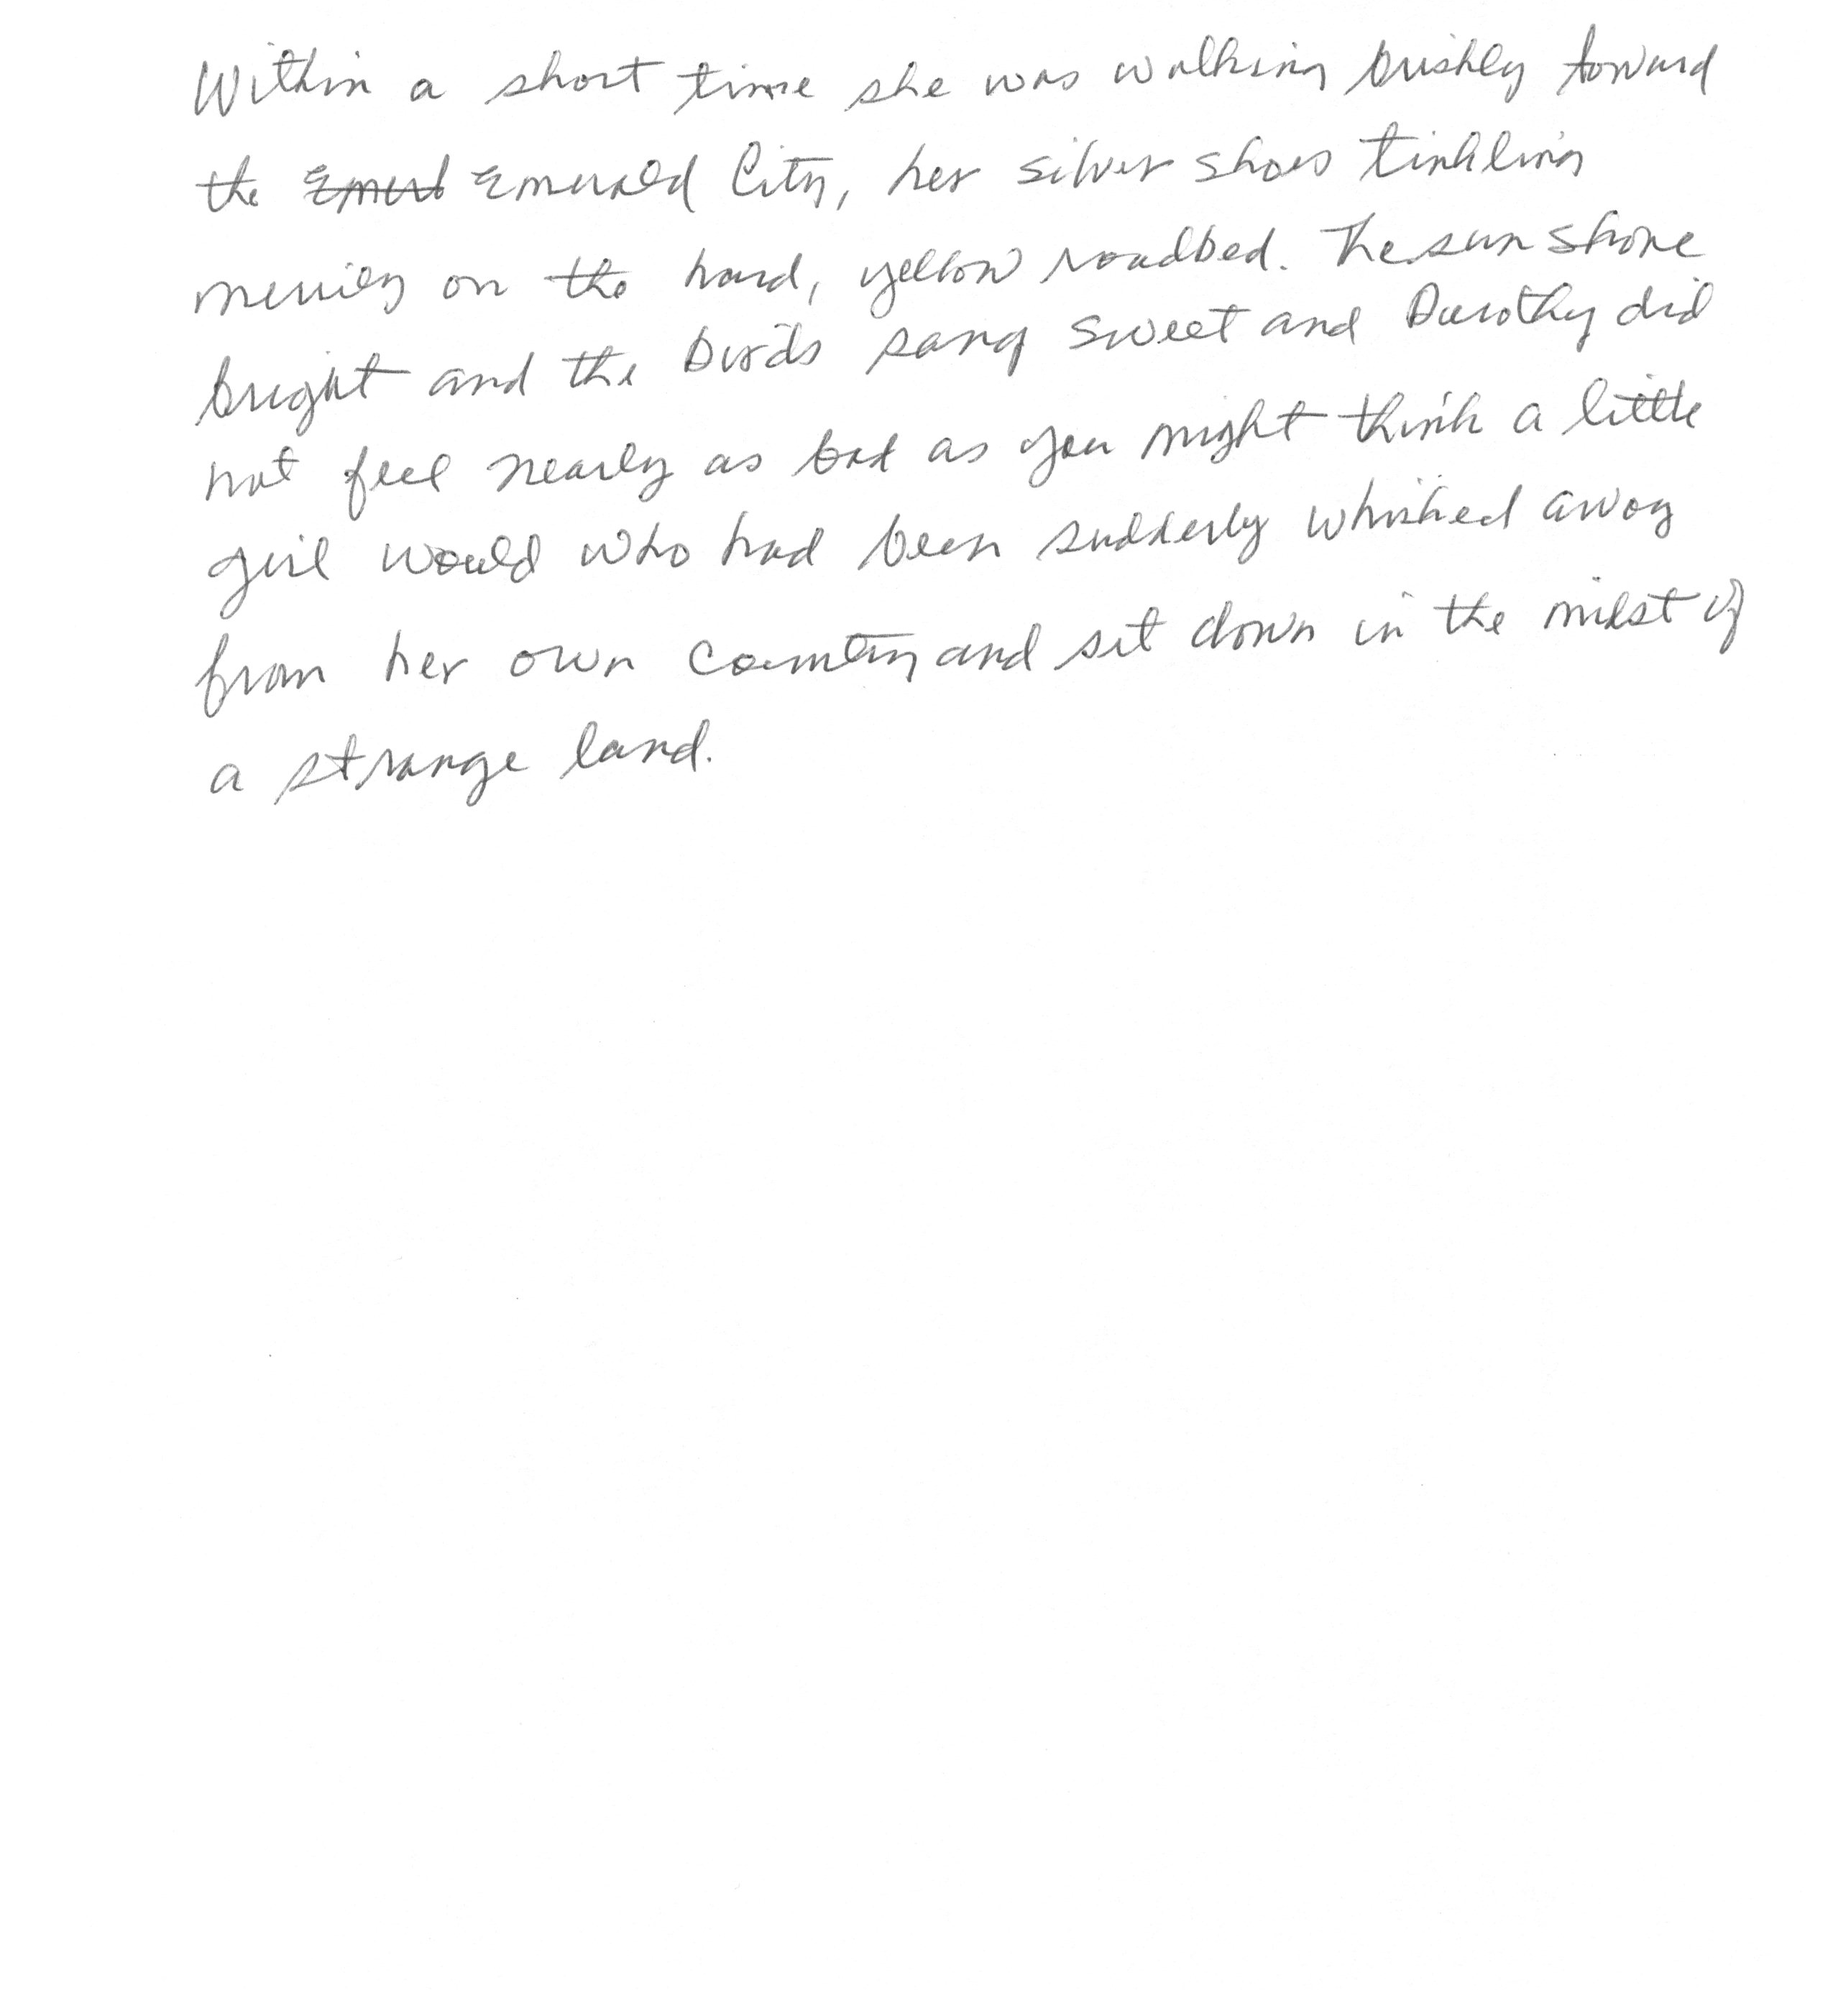 Within a short time she was walking briskly toward
the Emerald City, her silver shoes tinkling
merrily on the hard, yellow roadbed. The sun shone
bright and the birds sang sweet and Dorothy did
not feel nearly as bad as you might think a little
girl would who had been suddenly whisked away
from her own country and set down in the midst of
a strange land.